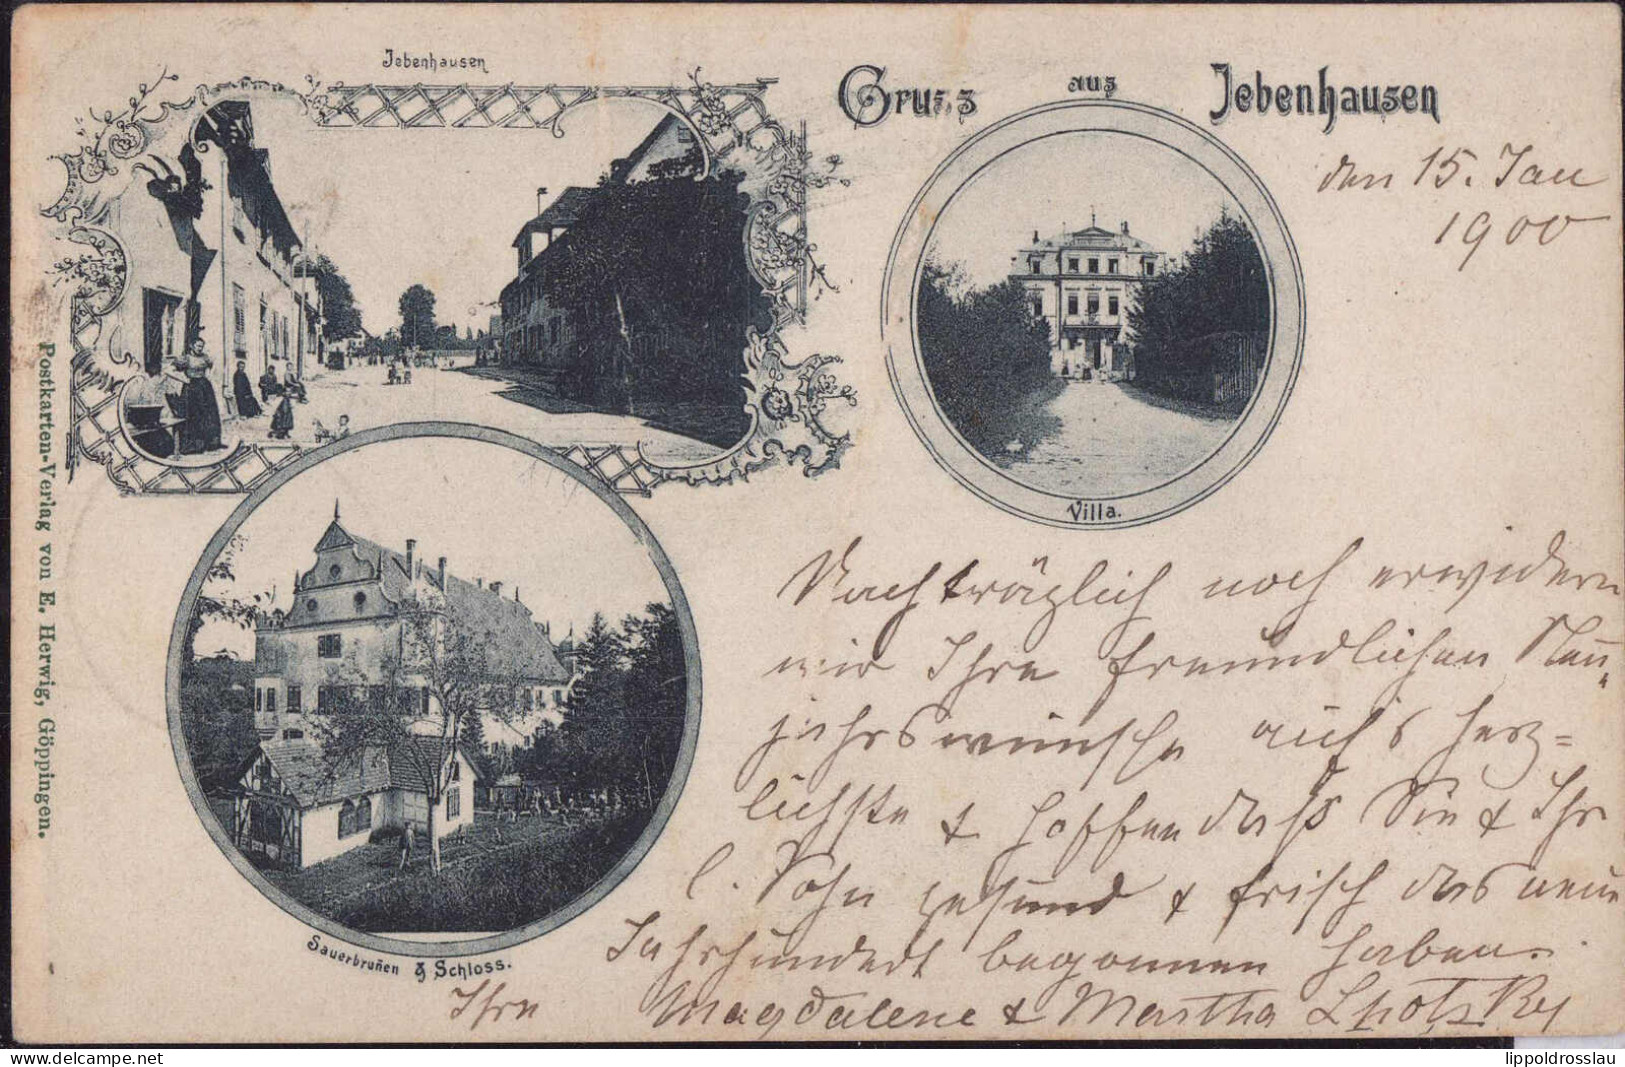 Jebenhausen
Gruss aus Jebenhausen
den 15. Jan
1900
Villa.
Nachträglich noch erwidern
wir Ihre freundlichen Neu„
jahrswünsche auf's herz=
lichste & hoffen daß Sie & Ihr
l. Sohn gesund & frisch das neue
Jahrhundert begonnen haben.
Ihre Magdalene & Martha
Sauerbrunen & Schloss.
Postkarten-Verlag von E. Herwig, Göppingen.
lippoldrosslau